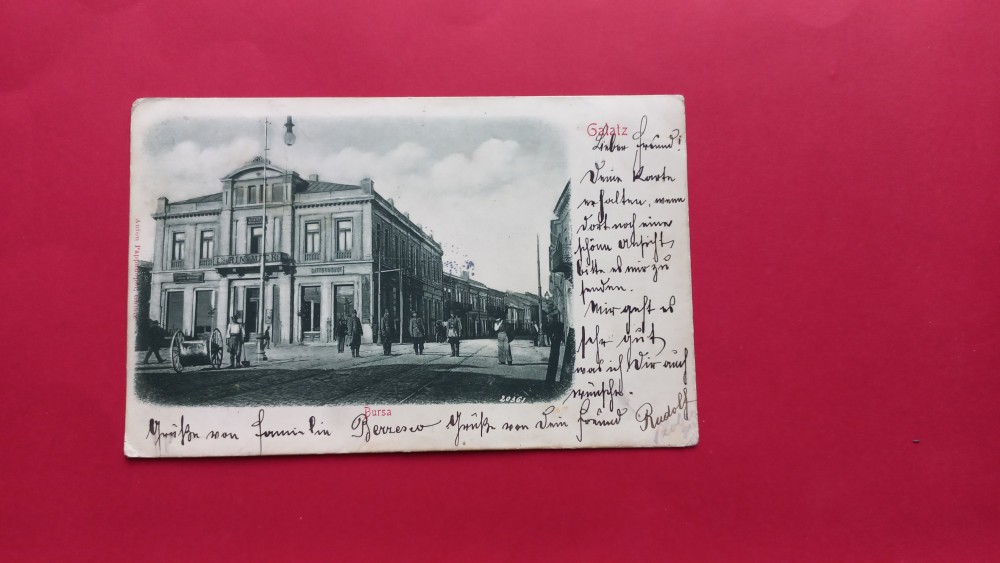 Galatz
Lieber Freund!
Deine Karte
erhalten, wenn
dort noch eine
schöne Ansicht
bitte es mir zu
senden.
Mir geht es
sehr gut
was ich Dir auch
wünsche.
29361
Bursa
Grüße von Familie Berzesco Grüße von Dein Freund Rudolf